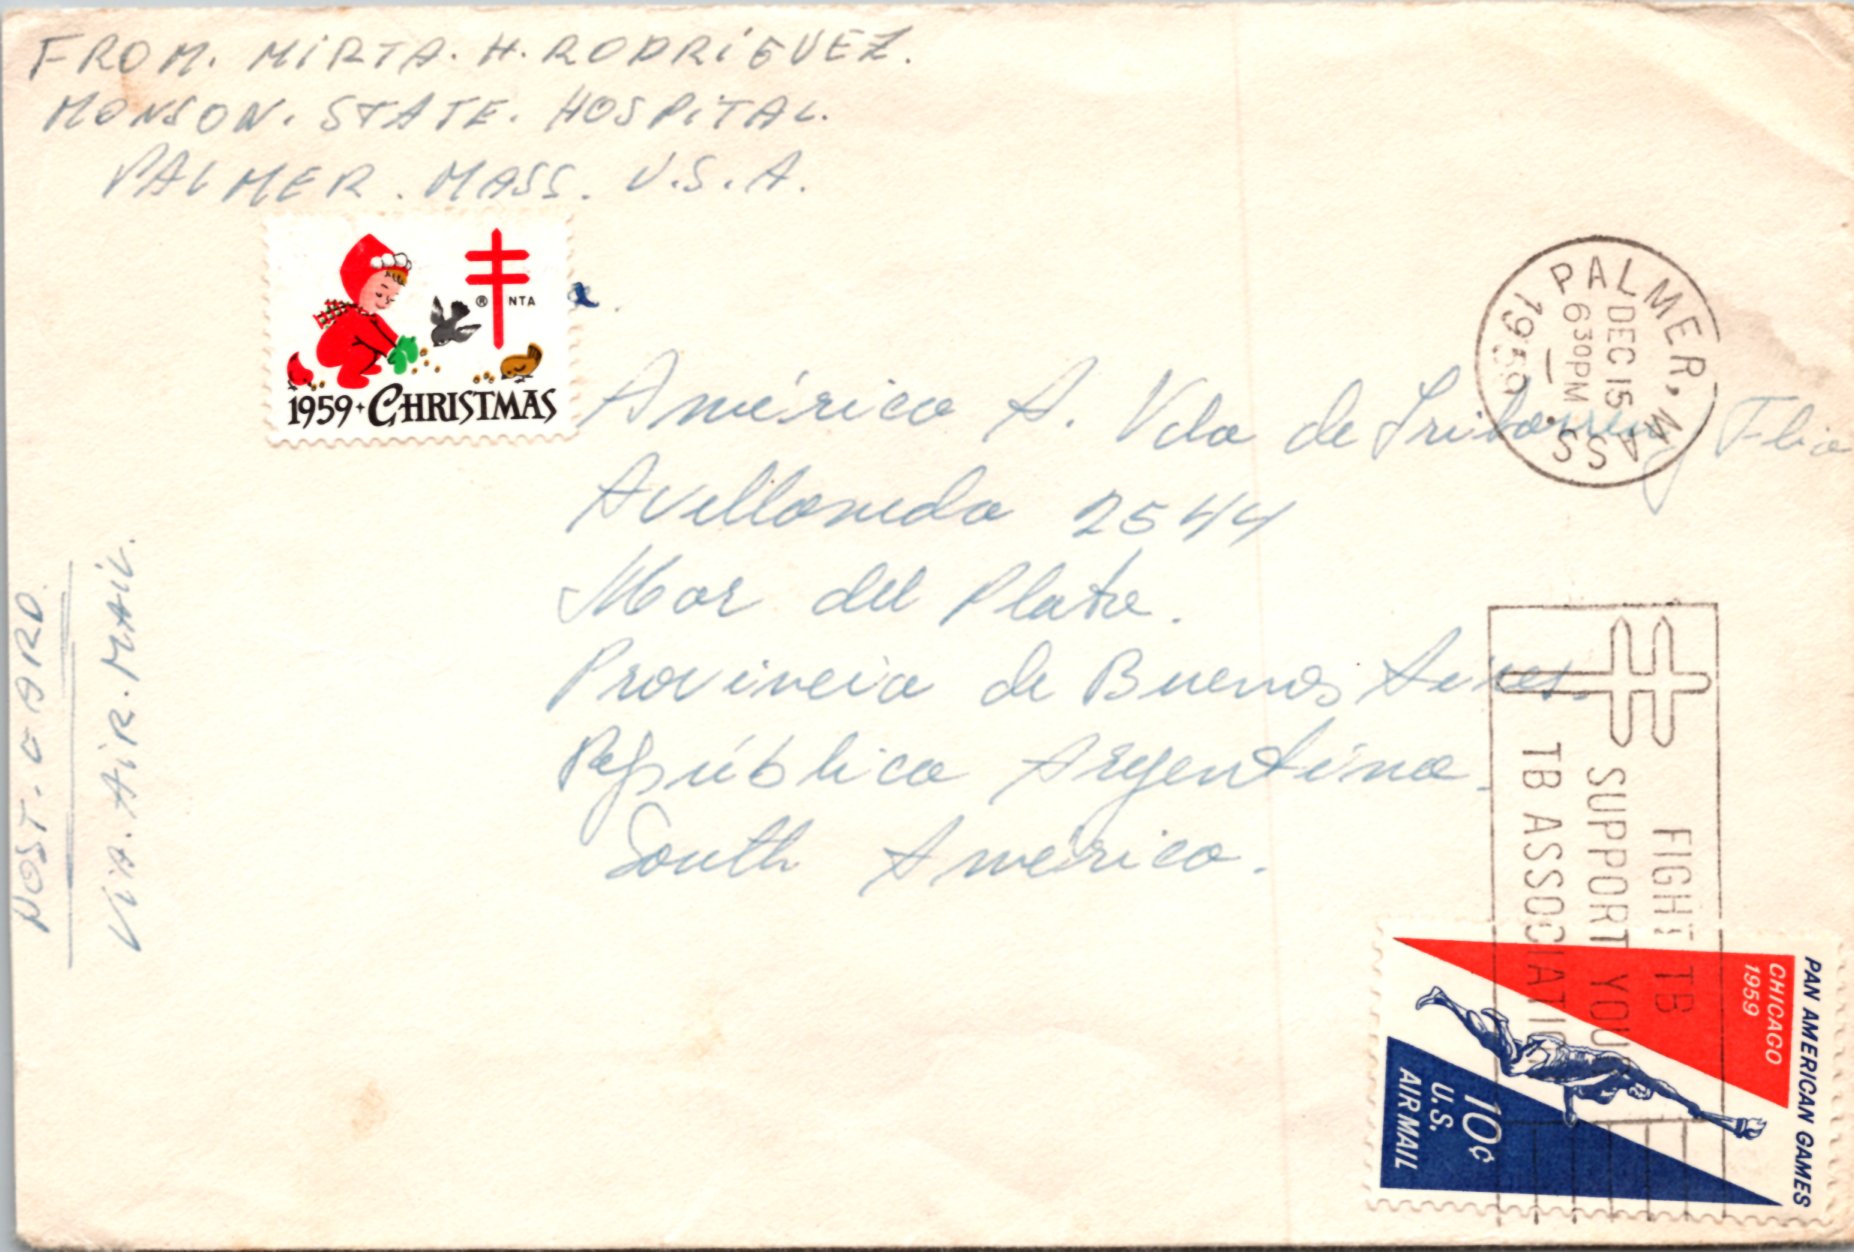 FROM. MIRTA. H. RODRIGUEZ.
MONSON. STATE. HOSPITAL.
PALMER. MASS. U.S.A.
® NTA
1959 CHRISTMAS
PALMER, MASS.
DEC 15
630PM
1959
América A. Vda de Iribarren y Flia
Avellaneda 2544
Mar del Plata.
Provincia de Buenos Aires.
República Argentina.
South América.
POST. CARD.
VIA. AIR. MAIL.
FIGHT TB
SUPPORT YOU
TB ASSOCIATIO
PAN AMERICAN GAMES
CHICAGO
1959
10¢
U.S.
AIRMAIL